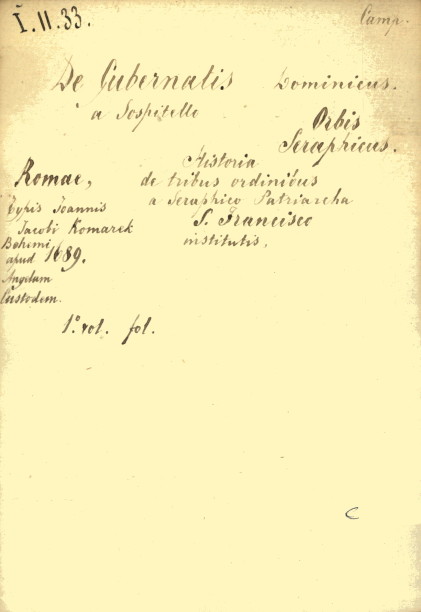 I. II. 33.
Camp.
De Gubernatis Dominicus.
a Sospitello
Orbis
Seraphicus.
Historia
de tribus ordinibus
a Seraphico Patriarcha
S. Francisco
institutis,
Romae,
Typis Joannis
Jacobi Komarek
Bohemi
apud 1689.
Angelum
Custodem.
1.º vol. fol.
C